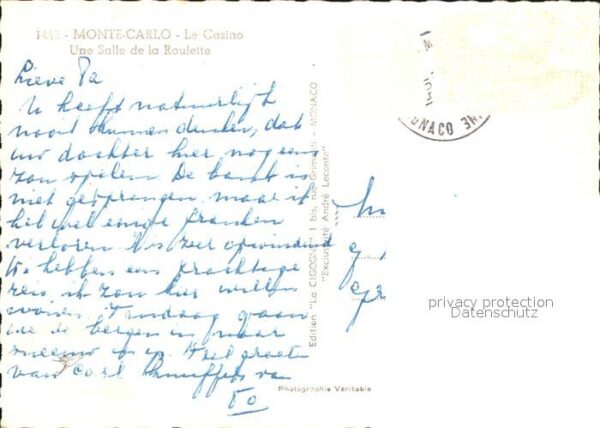 MONTE-CARLO - Le Casino
Une Salle de la Roulette
Lieve Pa
U heeft natuurlijk
nooit kunnen denken, dat
uw dochter hier nog eens
zou spelen. De bank is
niet gesprongen, maar ik
heb wel enige franken
verloren. 't Is zeer opwindend
We hebben een prachtige
reis, ik zou hier willen
wonen. Vandaag gaan
we de bergen in naar
sneeuw en ijs. Veel groeten
van
Edition "La CIGOGNE" 1 bis, rue Grimaldi - MONACO
"Exclusivité André Leconte"
Photographie Véritable
MONACO
privacy protection
Datenschutz